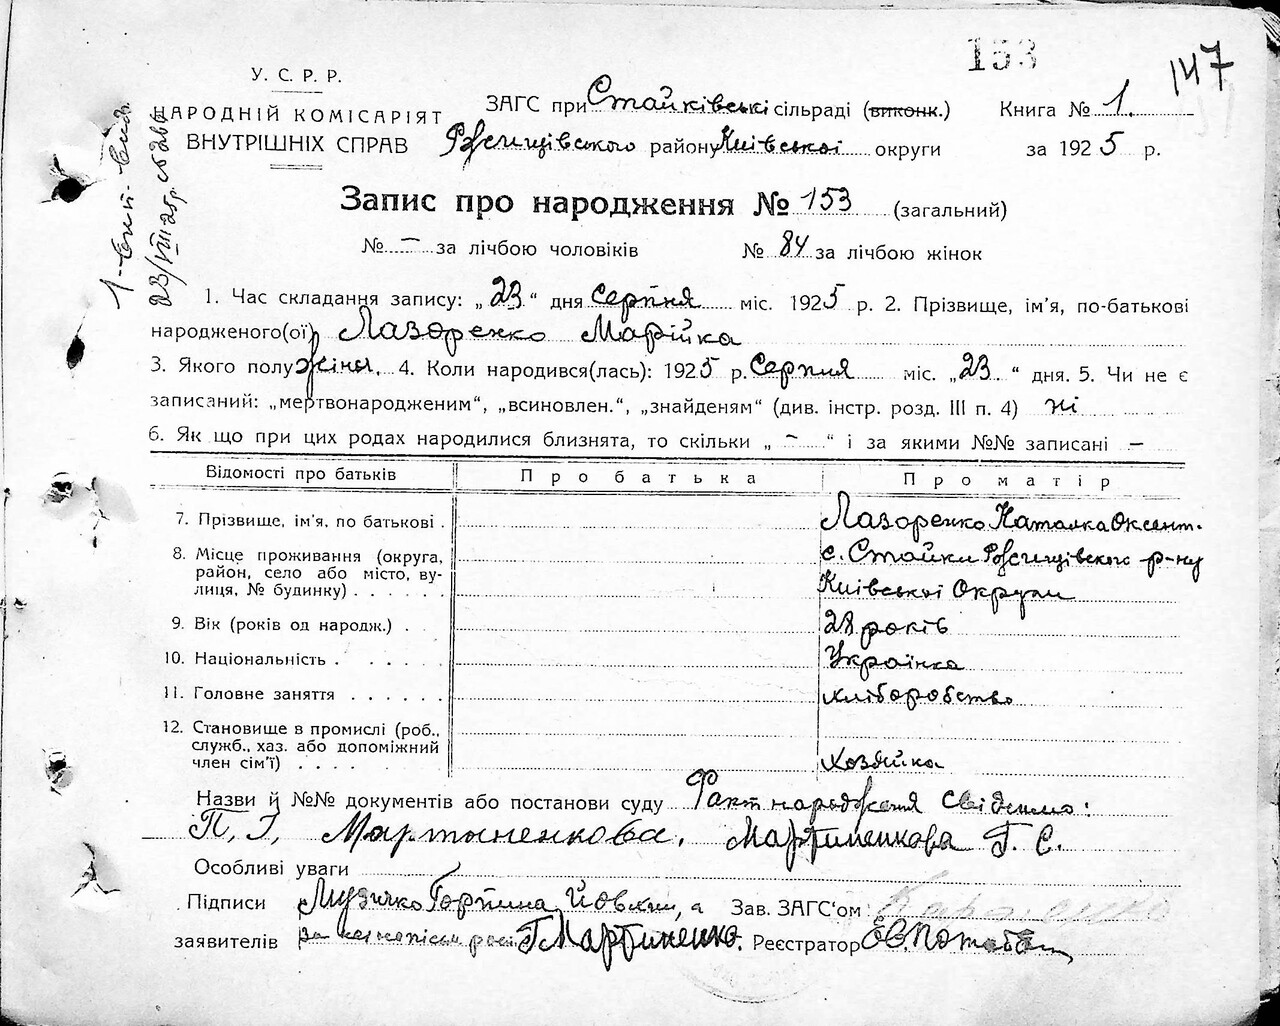 153
147
У. С. Р. Р.
НАРОДНІЙ КОМІСАРІЯТ
ВНУТРІШНІХ СПРАВ
ЗАГС при Стайківські сільраді (виконк.)
Ржищівського району Київської округи
Книга № 1.
за 1925 р.
Запис про народження № 153 (загальний)
№ — за лічбою чоловіків № 84 за лічбою жінок
1. Час складання запису: „23“ дня серпня міс. 1925 р. 2. Прізвище, ім'я, по-батькові
народженого(ої) Лазоренко Марійка
3. Якого полу жіноч. 4. Коли народився(лась): 1925 р. Серпня міс. „23“ дня. 5. Чи не є
записаний: „мертвонародженим“, „всиновлен.“, „знайденям“ (див. інстр. розд. III п. 4) ні
6. Як що при цих родах народилися близнята, то скільки „ — “ і за якими №№ записані —
Відомості про батьків Про батька Про матір
7. Прізвище, ім'я, по батькові . Лазоренко Наталка Оксент.
8. Місце проживання (округа, район, село або місто, вулиця, № будинку) с. Стайки Ржищівського р-ну
Київської Округи
9. Вік (років од народж.) . 28 років
10. Національність . Українка
11. Головне заняття хліборобство
12. Становище в промислі (роб., служб., хаз. або допоміжний член сім'ї) Хозяйка
Назви й №№ документів або постанови суду Факт народження свідчимо:
П. Г. Мартиненкова. Мартиненкова Г. Є.
Особливі уваги
Підписи Музичко Горпина, а Зав. ЗАГС'ом:
заявителів за Г Мартиненко. Реєстратор